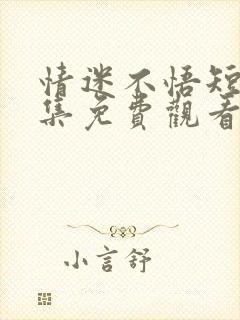 情迷不悟短
集免費觀看
小言舒